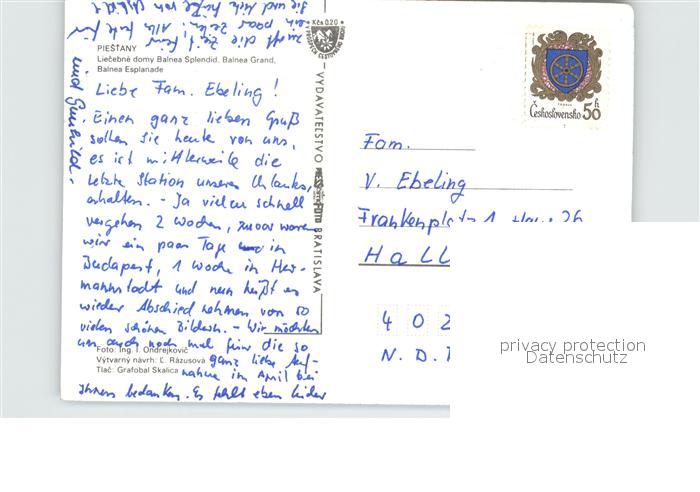 Kčs 0,20
PIEŠŤANY
Liečebné domy Balnea Splendid, Balnea Grand,
Balnea Esplanade
Liebe Fam. Ebeling!
Einen ganz lieben Gruß
sollen Sie heute von uns,
es ist mittlerweile die
letzte Station unseres Urlaubs,
erhalten. - Ja viel zu schnell
vergehen 2 Wochen, zuvor waren
wir ein paar Tage in
Budapest, 1 Woche in Her-
mannstadt und nun heißt es
wieder Abschied nehmen von so
vielen schönen Bildern. - Wir möchten
uns auch noch mal für die so
Foto: Ing. I. Ondrejkovič
Výtvarný návrh: Ľ. Rázusová ganz liebe Auf-
Tlač: Grafobal Skalica nahme im April bei
Ihnen bedanken. Es fehlt eben leider
zumeist die Zeit für
ein paar Zeilen! Alles Gute für
Sie und
und Gunhild.
VYDAVATEĽSTVO
BRATISLAVA
Československo 50 h
Fam.
V. Ebeling
Frankenplatz 1, Haus 26
HALL
4 0 2
N. D. T
privacy protection
Datenschutz